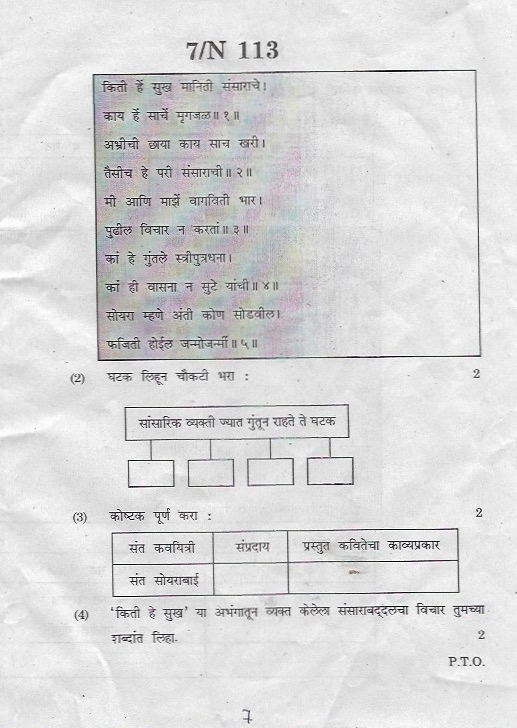 7/N 113
किती हें सुख मानिती संसाराचे।
काय हें साचें मृगजळ॥ १॥
अभ्रीची छाया काय साच खरी।
तैसीच हे परी संसाराची॥ २॥
मी आणि माझें वागविती भार।
पुढील विचार न करतां॥ ३॥
कां हे गुंतले स्त्रीपुत्रधना।
कां ही वासना न सुटे यांची॥ ४॥
सोयरा म्हणे अंती कोण सोडवील।
फजिती होईल जन्मोजन्मीं॥ ५॥
(2) घटक लिहून चौकटी भरा : 2
सांसारिक व्यक्ती ज्यात गुंतून राहते ते घटक
(3) कोष्टक पूर्ण करा : 2
संत कवयित्री संप्रदाय प्रस्तुत कवितेचा काव्यप्रकार
संत सोयराबाई
(4) 'किती हे सुख' या अभंगातून व्यक्त केलेला संसाराबद्दलचा विचार तुमच्या
शब्दांत लिहा. 2
P.T.O.
7